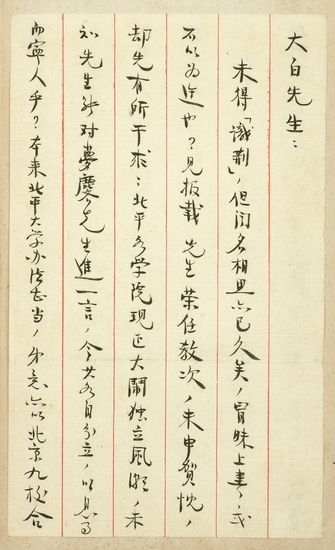 大白先生：
未得「識荊」，但闻名相思亦已久矣，冒昧上書，或
不以为迕也？見报載 先生荣任教次，未申賀忱，
却先有所干求：北平各学院現正大鬧独立風潮，未
知先生能对夢麐先生進一言，令其各自分立，以息事
而寧人乎？本来北平大学办法甚当，弟意亦以北京九校合